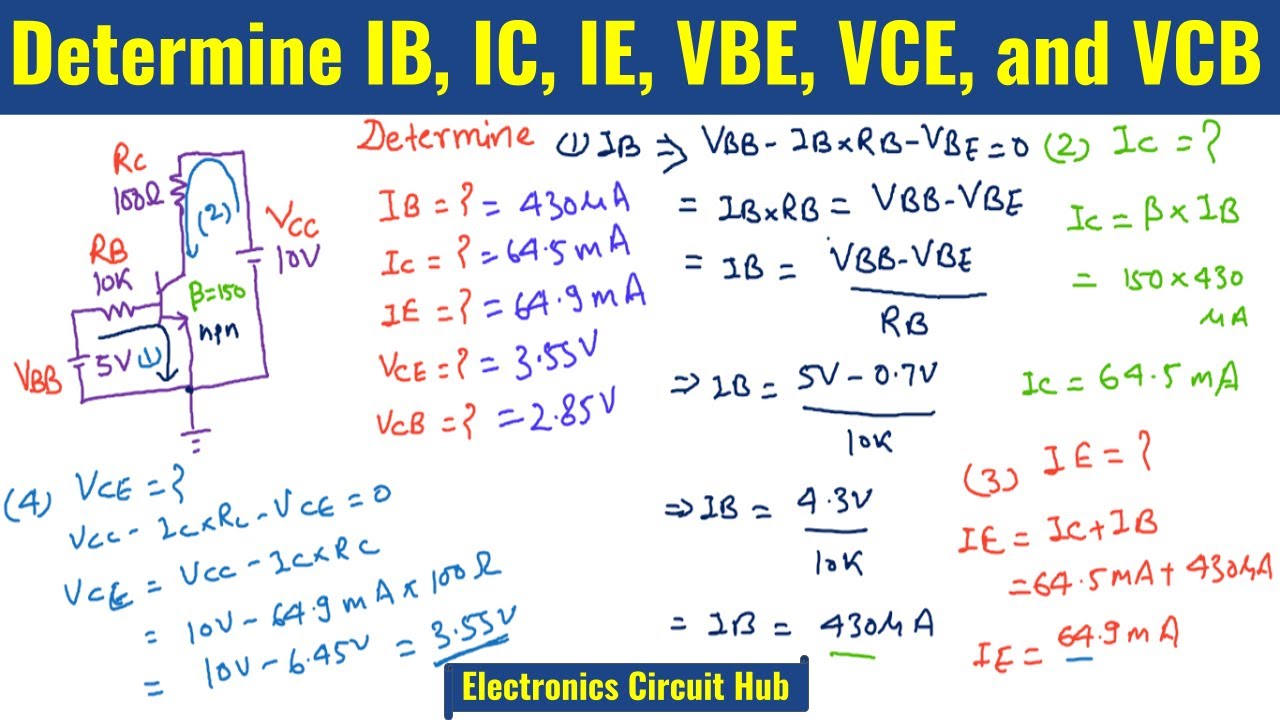 Determine IB, IC, IE, VBE, VCE, and VCB
RC
100Ω
(2)
VCC
10V
RB
10K
β=150
npn
VBB
5V
(1)
Determine
IB = ? = 430μA
IC = ? = 64.5 mA
IE = ? = 64.9 mA
VCE = ? = 3.55V
VCB = ? = 2.85V
(1) IB ⇒ VBB - IB×RB - VBE = 0
= IB×RB = VBB-VBE
= IB = VBB-VBE
RB
⇒ IB = 5V - 0.7V
10K
⇒ IB = 4.3V
10K
= IB = 430μA
(2) IC = ?
IC = β × IB
= 150 × 430
μA
IC = 64.5 mA
(3) IE = ?
IE = IC + IB
= 64.5 mA + 430μA
IE = 64.9 mA
(4) VCE = ?
VCC - IC×RC - VCE = 0
VCE = VCC - IC×RC
= 10V - 64.9 mA × 100Ω
= 10V - 6.45V = 3.55V
Electronics Circuit Hub